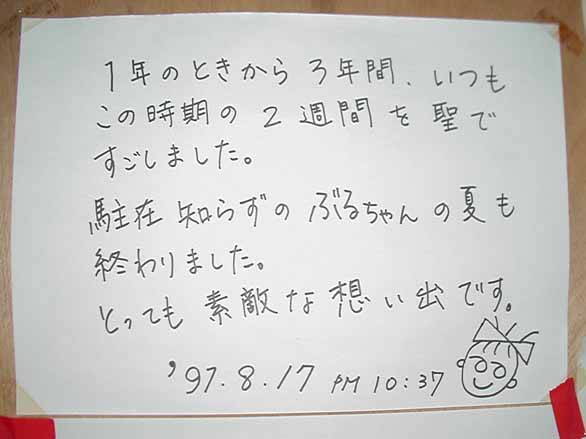 1年のときから3年間、いつも
この時期の2週間を聖で
すごしました。
駐在知らずのぶるちゃんの夏も
終わりました。
とっても素敵な想い出です。
'97.8.17 PM 10:37